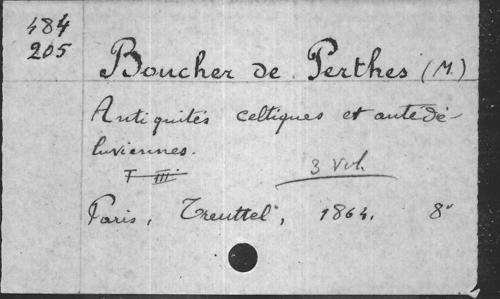 484
205
Boucher de Perthes (M.)
Antiquités celtiques et antédé-
luviennes.
3 vol.
I III
Paris, Treuttel, 1864. 8°